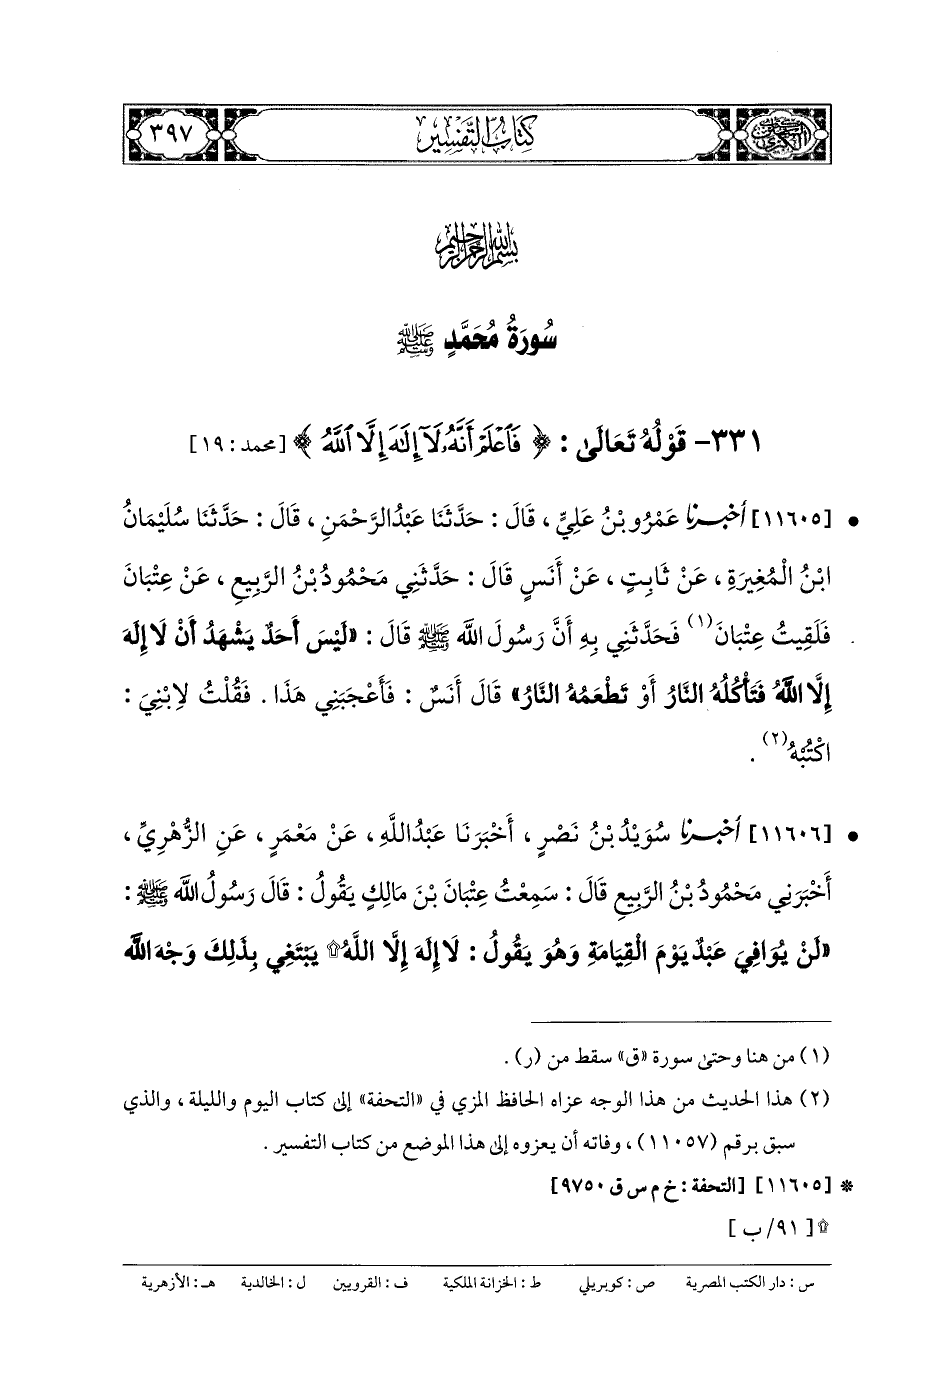 السنن الكبرى
كتاب التفسير
٣٩٧
بسم الله الرحمن الرحيم
سُورَةُ مُحَمَّدٍ ﷺ
٣٣١- قَوْلُهُ تَعَالَىٰ : ﴿ فَٱعْلَمْ أَنَّهُۥ لَآ إِلَٰهَ إِلَّا ٱللَّهُ ﴾ [محمد : ١٩]
• [١١٦٠٥] أخبرنا عَمْرُو بْنُ عَلِيٍّ ، قَالَ : حَدَّثَنَا عَبْدُ الرَّحْمَنِ ، قَالَ : حَدَّثَنَا سُلَيْمَانُ
ابْنُ الْمُغِيرَةِ ، عَنْ ثَابِتٍ ، عَنْ أَنَسٍ قَالَ : حَدَّثَنِي مَحْمُودُ بْنُ الرَّبِيعِ ، عَنْ عِتْبَانَ
فَلَقِيتُ عِتْبَانَ(١) فَحَدَّثَنِي بِهِ أَنَّ رَسُولَ اللَّهِ ﷺ قَالَ : «لَيْسَ أَحَدٌ يَشْهَدُ أَنْ لَا إِلَهَ
إِلَّا اللَّهُ فَتَأْكُلُهُ النَّارُ أَوْ تَطْعَمُهُ النَّارُ» قَالَ أَنَسٌ : فَأَعْجَبَنِي هَذَا . فَقُلْتُ لِابْنِيَ :
اكْتُبْهُ(٢) .
• [١١٦٠٦] أخبرنا سُوَيْدُ بْنُ نَصْرٍ ، أَخْبَرَنَا عَبْدُ اللَّهِ ، عَنْ مَعْمَرٍ ، عَنِ الزُّهْرِيِّ ،
أَخْبَرَنِي مَحْمُودُ بْنُ الرَّبِيعِ قَالَ : سَمِعْتُ عِتْبَانَ بْنَ مَالِكٍ يَقُولُ : قَالَ رَسُولُ اللَّهِ ﷺ :
«لَنْ يُوَافِيَ عَبْدٌ يَوْمَ الْقِيَامَةِ وَهُوَ يَقُولُ : لَا إِلَهَ إِلَّا اللَّهُ۩ يَبْتَغِي بِذَلِكَ وَجْهَ اللَّهِ
(١) من هنا وحتى سورة «ق» سقط من (ر) .
(٢) هذا الحديث من هذا الوجه عزاه الحافظ المزي في «التحفة» إلى كتاب اليوم والليلة ، والذي
سبق برقم (١١٠٥٧) ، وفاته أن يعزوه إلى هذا الموضع من كتاب التفسير .
* [١١٦٠٥] [التحفة : خ م س ق ٩٧٥٠]
۩ [٩١/ ب]
س : دار الكتب المصرية ص : كوبريلي ط : الخزانة الملكية ف : القرويين ل : الخالدية هـ : الأزهرية